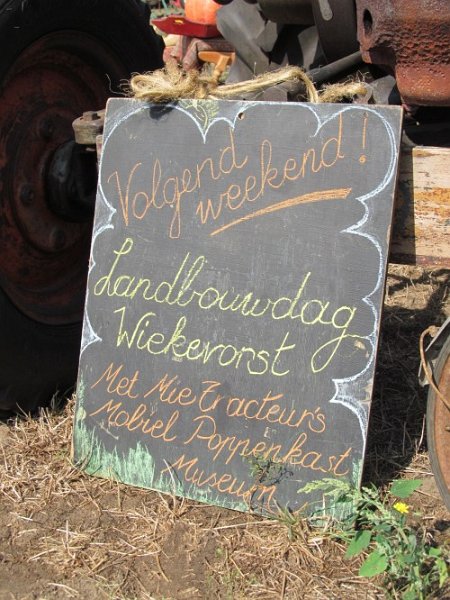 Volgend
weekend!
Landbouwdag
Wiekevorst
Met Mie Tracteur's
Mobiel Poppenkast
Museum